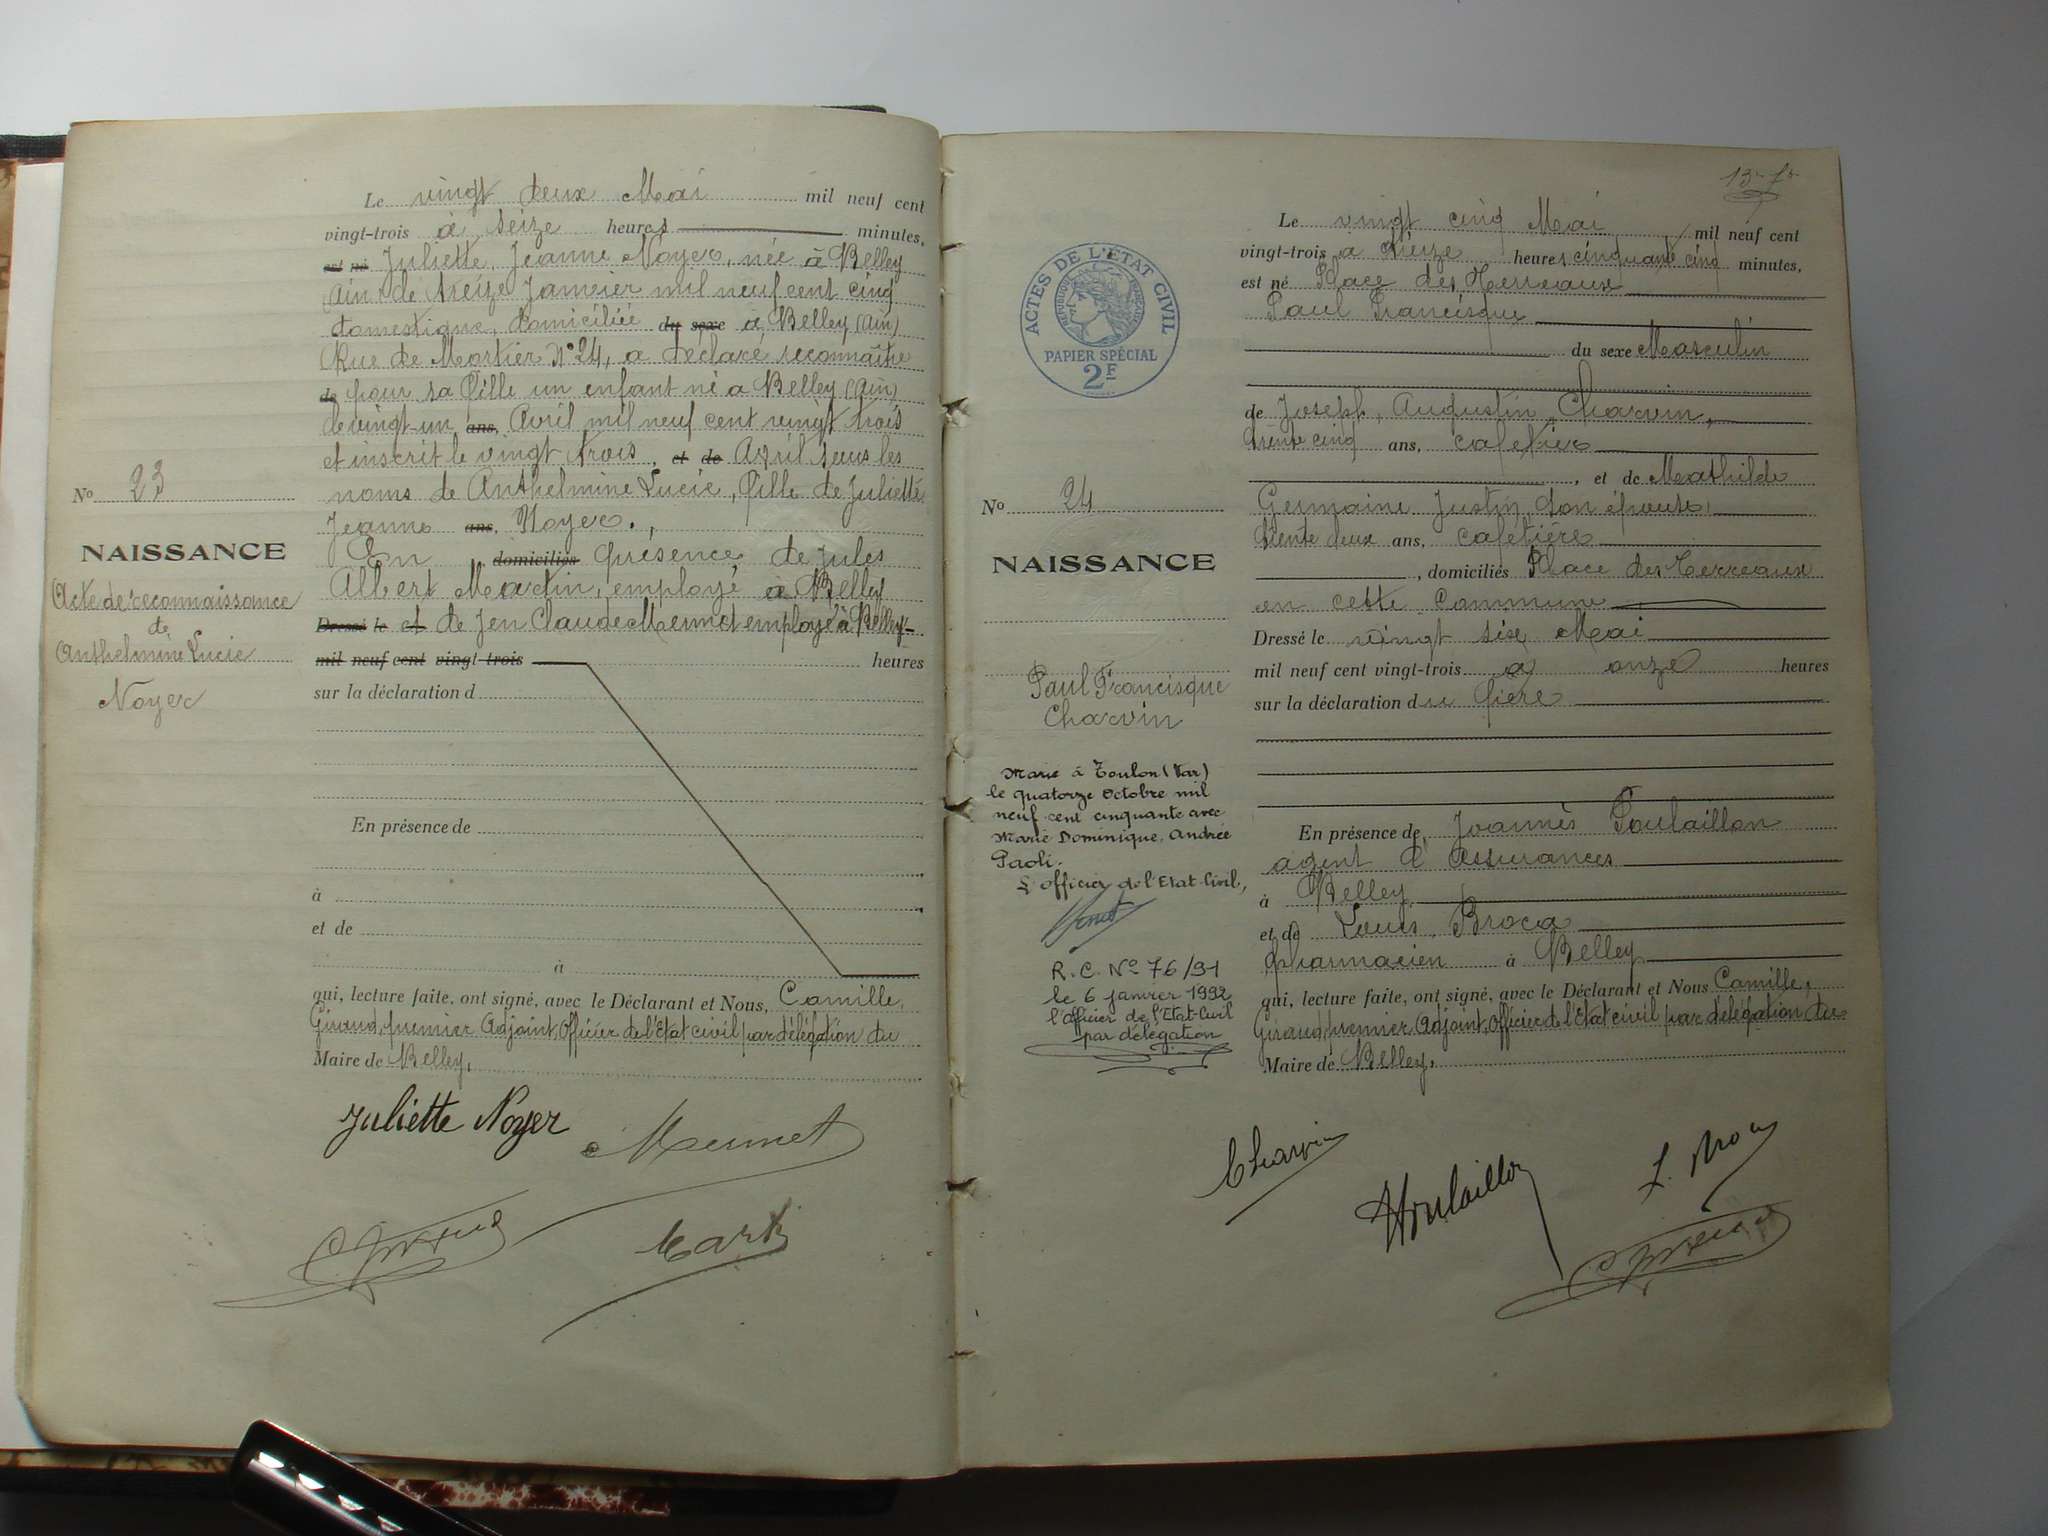 Le vingt deux Mai mil neuf cent
vingt-trois à seize heures minutes,
est né Juliette, Jeanne Noyer, née à Belley
Ain, le treize Janvier mil neuf cent cinq
domestique, domiciliée du sexe à Belley (Ain)
Rue de Mortier N° 24, a déclaré reconnaître
de pour sa fille un enfant né à Belley (Ain)
le vingt-un ans, Avril mil neuf cent vingt trois
et inscrit le vingt trois, et de Avril sous les
noms de Anthelmine Lucie, fille de Juliette
Jeanne ans, Noyer.,
En domiciliés présence de Jules
Albert Martin, employé à Belley
Dressé le et de Jen Claude Mermet employé à Belley-
mil neuf cent vingt-trois heures
sur la déclaration d
En présence de
à
et de
à
qui, lecture faite, ont signé, avec le Déclarant et Nous, Camille,
Giraud, premier Adjoint, Officier de l'Etat civil par délégation du
Maire de Belley,
Juliette Noyer
Mermet
C. Giraud
Martin
No 23
NAISSANCE
Acte de reconnaissance
de
Anthelmine Lucie
Noyer
ACTES DE L'ÉTAT CIVIL
RÉPUBLIQUE FRANÇAISE
PAPIER SPÉCIAL
2F
No 24
NAISSANCE
Paul Francisque
Charvin
Marié à Toulon (Var)
le quatorze Octobre mil
neuf cent cinquante avec
Marie Dominique, Andrée
Paoli.
L'officier de l'Etat-Civil,
R.C. No 76/91
le 6 janvier 1992
l'officier de l'Etat-Civil
par délégation
Le vingt cinq Mai mil neuf cent
vingt-trois à treize heures cinquante cinq minutes,
est né Place des Terreaux
Paul Francisque
du sexe Masculin
de Joseph, Augustin Charvin,
trente cinq ans, cafetier
, et de Mathilde
Germaine Justin, son épouse,
trente deux ans, cafetière
, domiciliés Place des Terreaux
en cette Commune
Dressé le vingt six Mai
mil neuf cent vingt-trois à onze heures
sur la déclaration du père
En présence de Joannès Poulaillon
agent d'assurances
à Belley
et de Louis Broca
pharmacien à Belley
qui, lecture faite, ont signé, avec le Déclarant et Nous Camille,
Giraud, premier Adjoint, Officier de l'Etat civil par délégation du
Maire de Belley,
Charvin
Poulaillon
C. Giraud